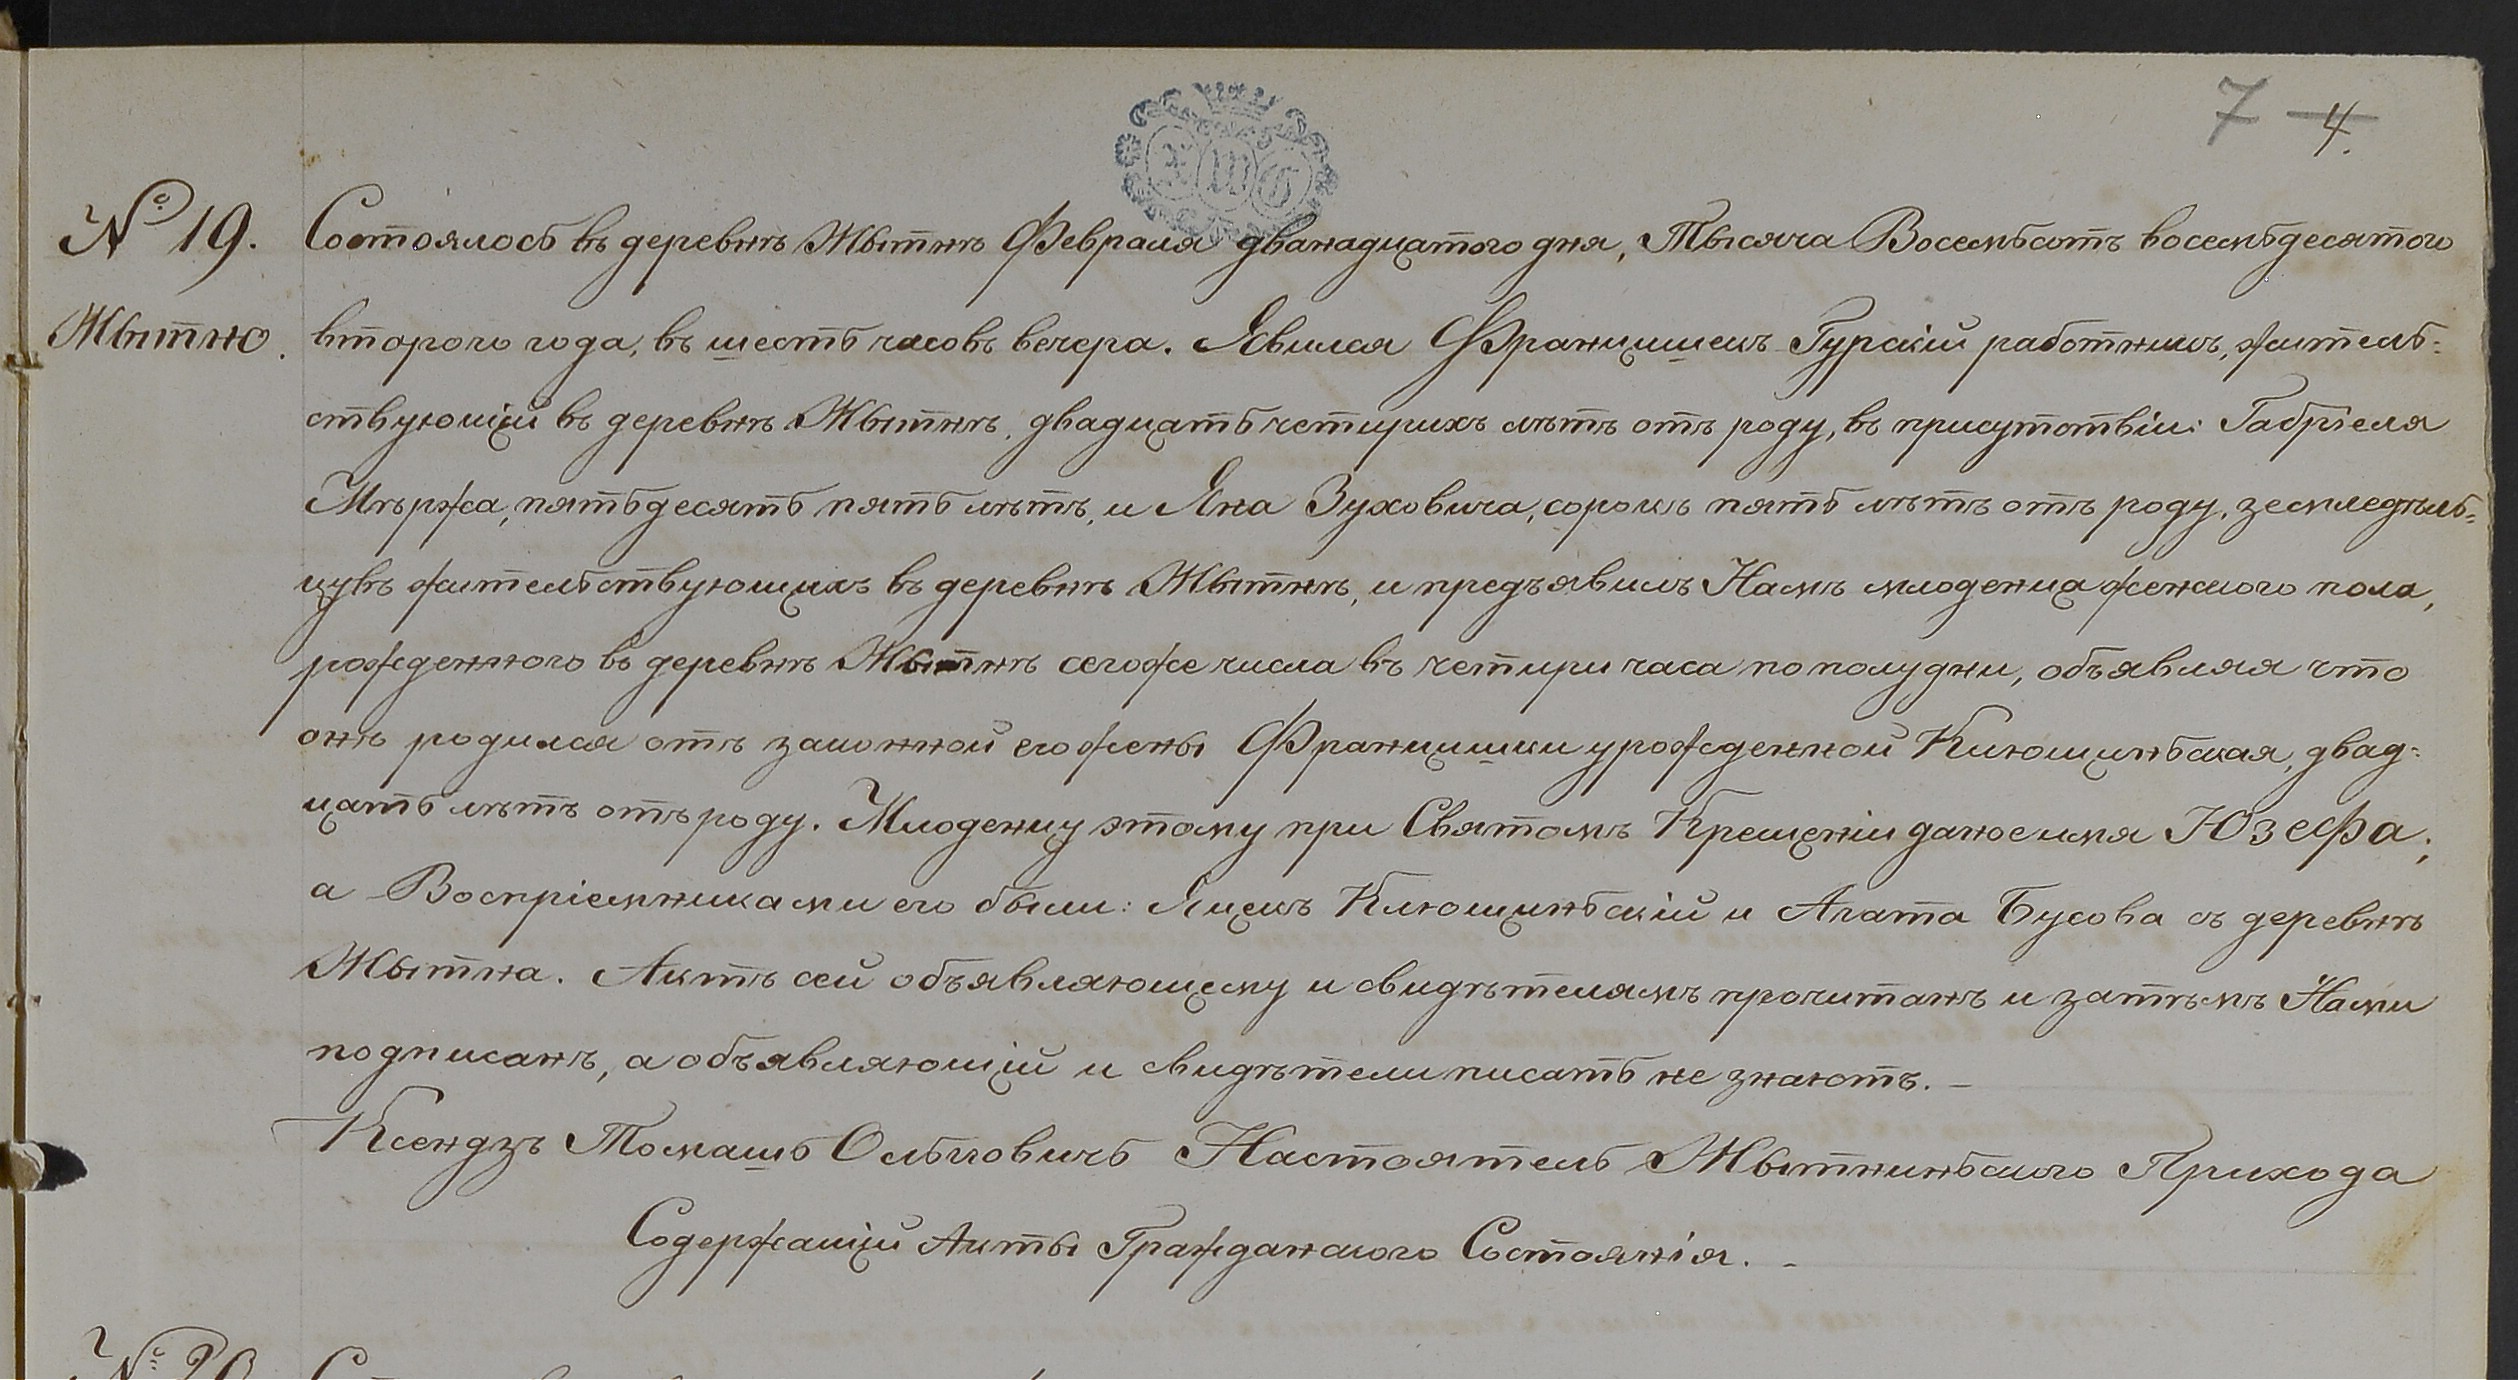 7 4.
№ 19. Состоялось въ деревнѣ Жытнѣ Февраля дванадцатого дня, Тысяча Восемьсотъ восемьдесятого
Жытно. второго года, въ шесть часовъ вечера. Явился Францишекъ Гурскій работникъ, житель=
ствующій въ деревнѣ Жытнѣ, двадцать четирихъ лѣтъ отъ роду, въ присутствіи: Габріеля
Мѣржа, пятьдесятъ пять лѣтъ, и Яна Зуховича, сорокъ пять лѣтъ отъ роду, земледѣль=
цувъ жительствующихъ въ деревнѣ Жытнѣ, и предъявилъ Намъ младенца женского пола,
рожденного въ деревнѣ Жытнѣ сегоже числа въ четири часа по полудни, объявляя что
онъ родился отъ законной его жены Францишки урожденной Клющиньская, двад=
цать лѣтъ отъ роду. Младенцу этому при Святомъ Крещеніи дано имя Юзефа;
а Воспріемниками его были: Яцекъ Клющиньскій и Агата Бусова съ деревнѣ
Жытна. Актъ сей объявляющему и свидѣтелямъ прочитанъ и затѣмъ Нами
подписанъ, а объявляющій и свидѣтели писать не знаютъ. —
Ксендзъ Томашъ Ольговичъ Настоятель Жытниньского Прихода
Содержащій Акты Гражданского Состоянія. -
№ 20